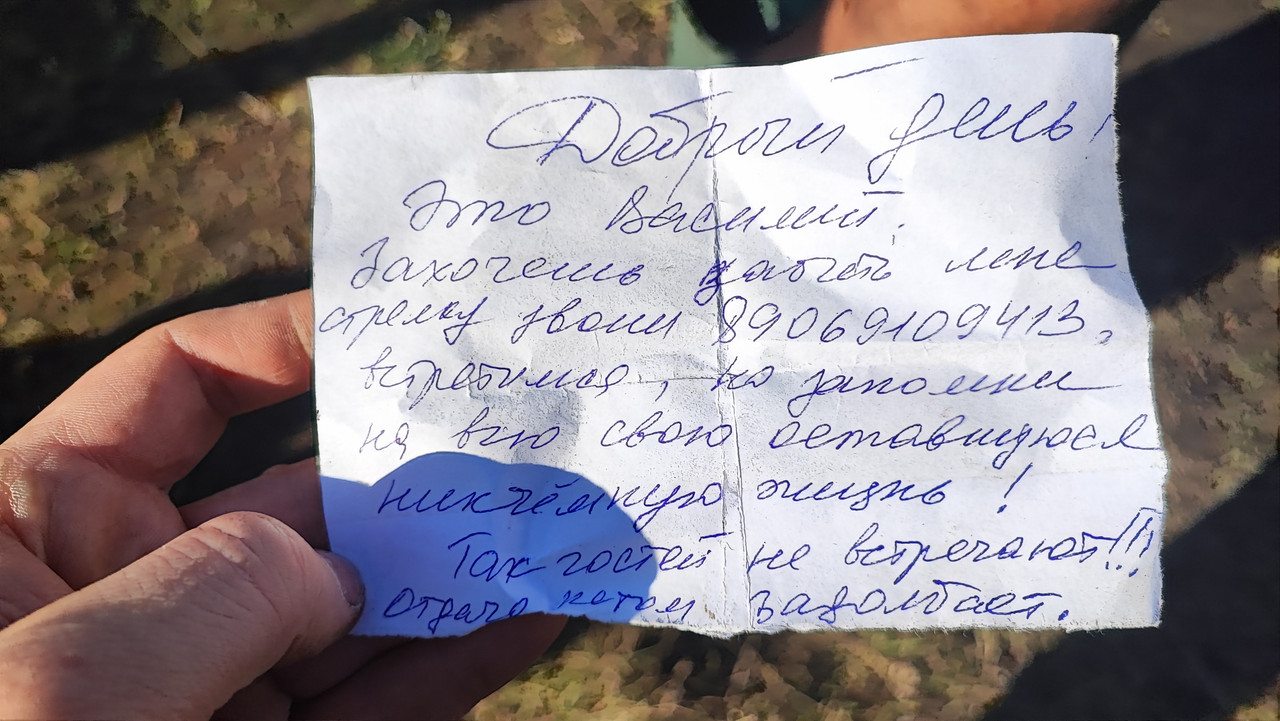 Добрый день!
Это Василий.
Захочешь забить мне
стрелку звони 89069109413,
встретимся, но запомни
на всю свою оставшуюся
никчёмную жизнь!
Так гостей не встречают!!!
Отдача потом задолбает.